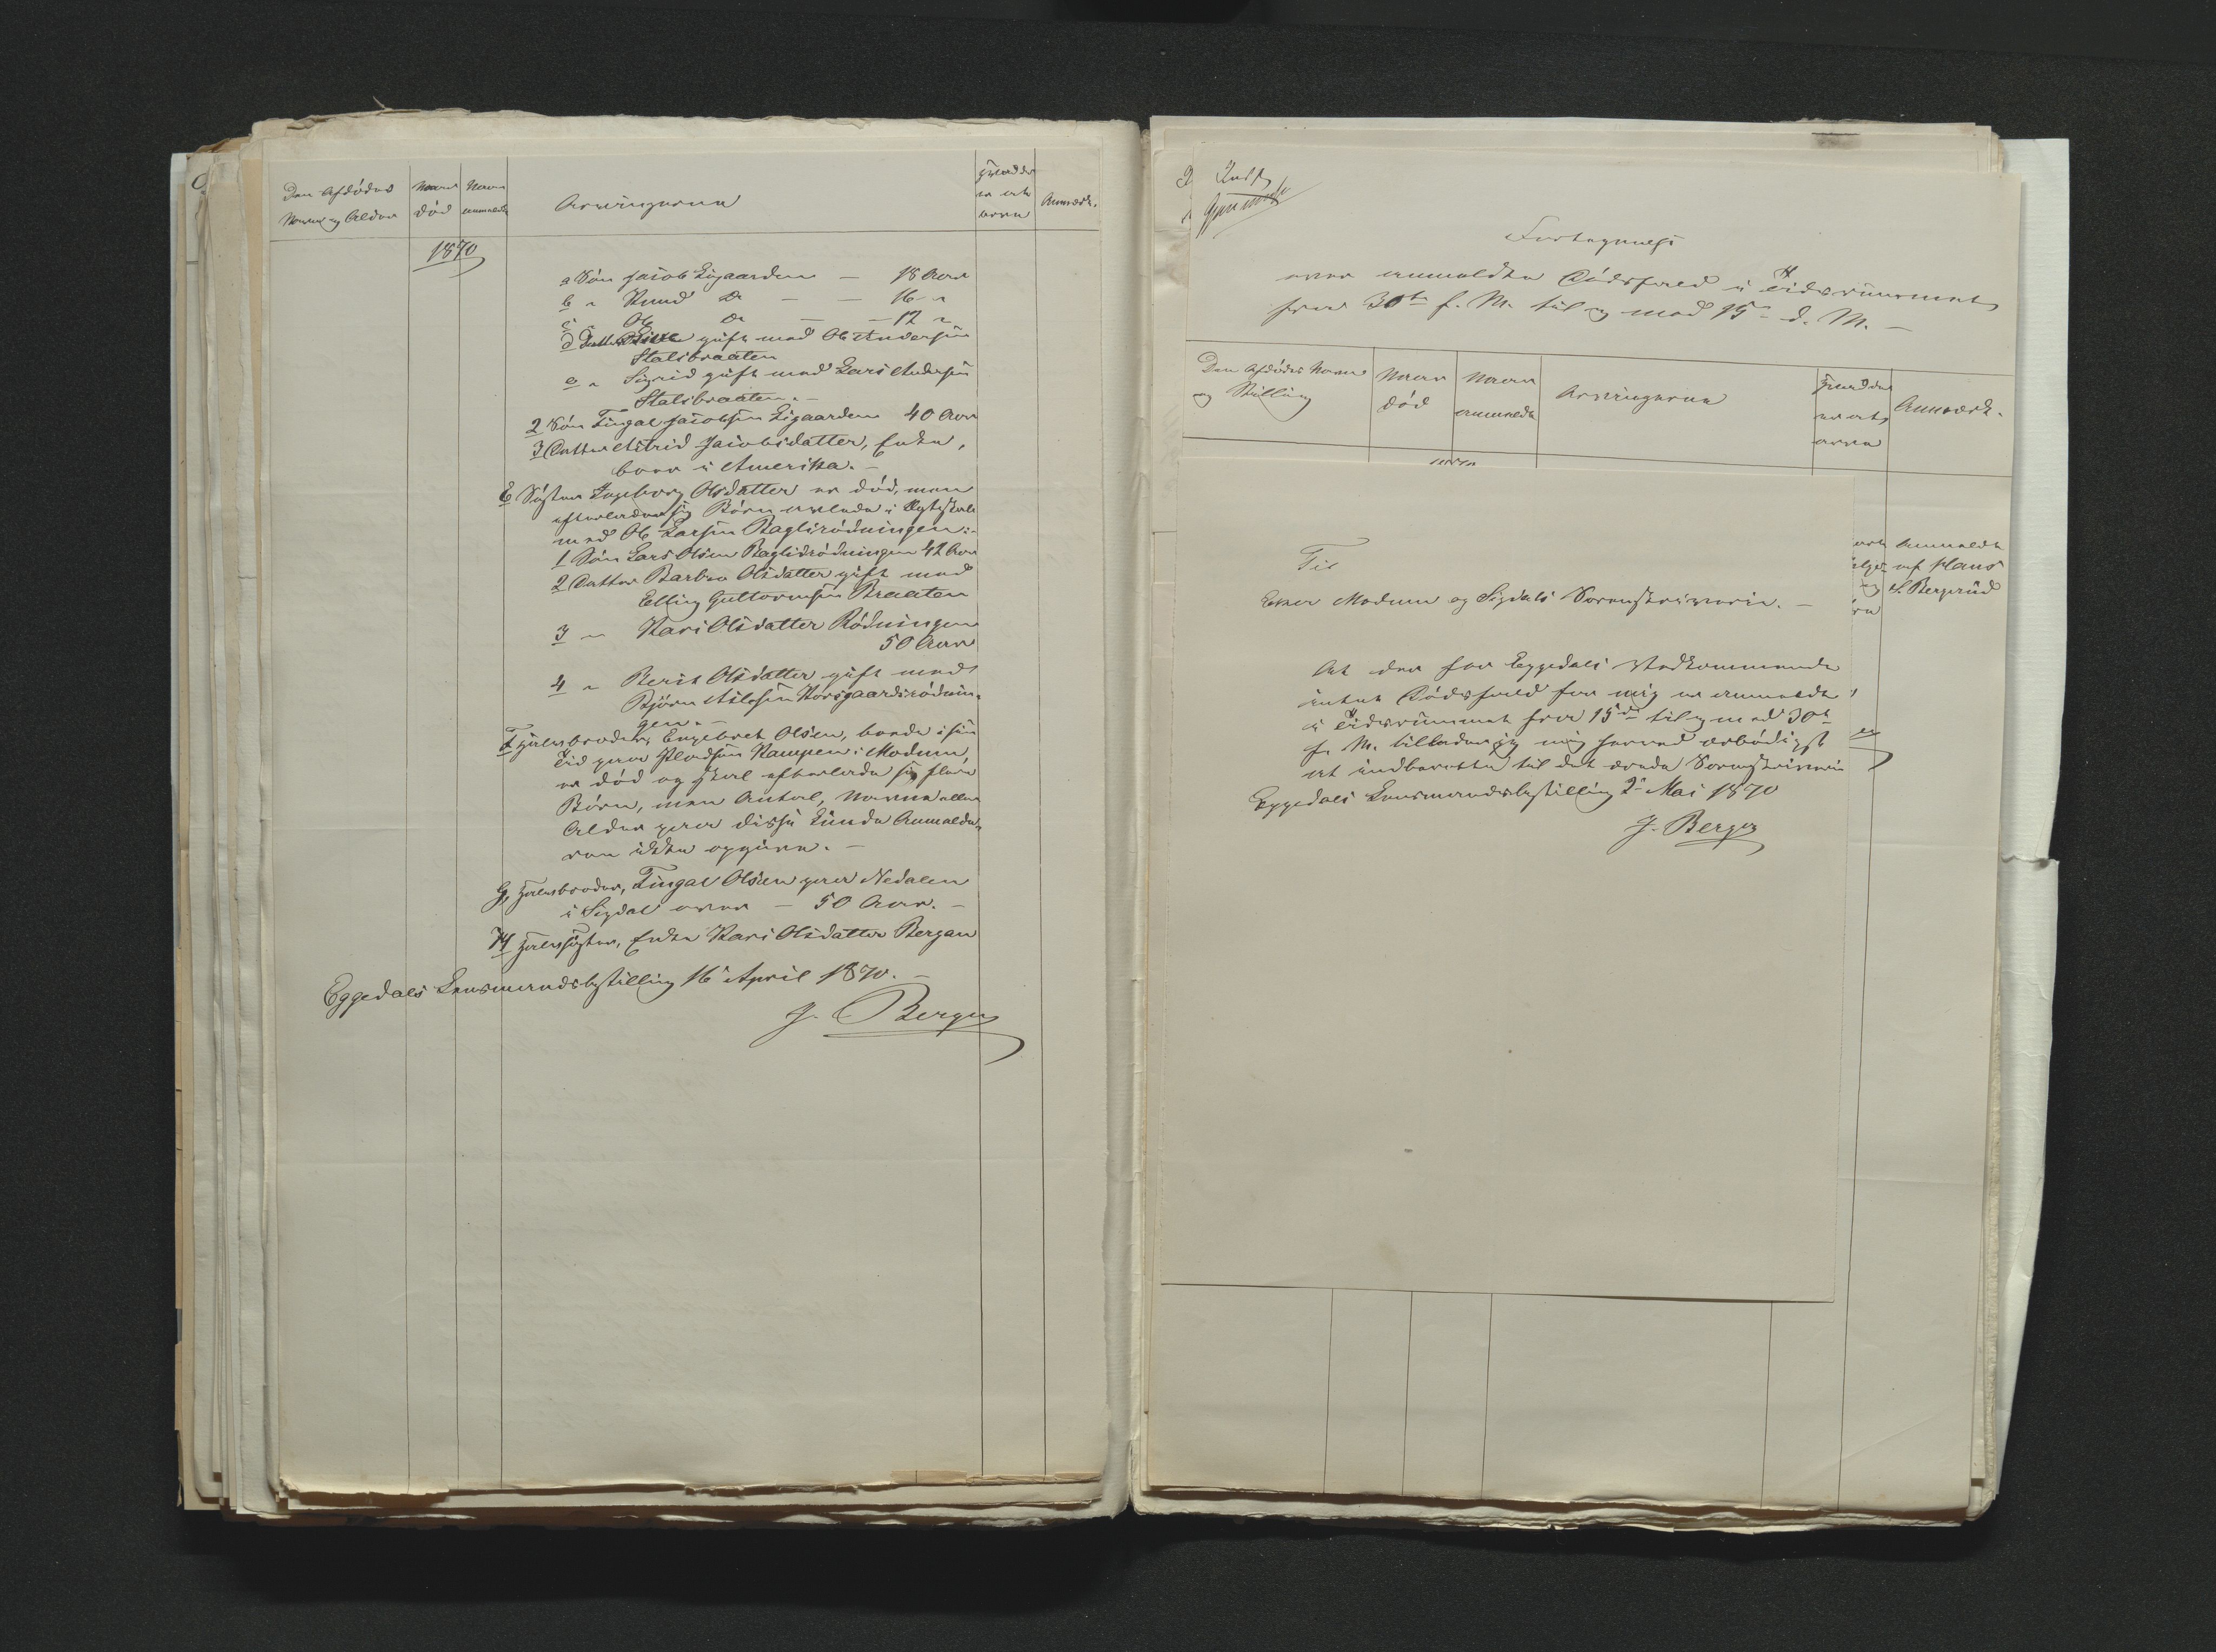 Den Afdødes
Navn og Alder
Naar
død
Naar
anmeldt
Arvingerne
Hvad der
er at
arve
Anmærk.
1870
a Søn Jacob Eigaarden — 18 Aar
b " Knud Do — — 16 "
c " Ole Do — — 12 "
d Datter gift med Ole Andersen
Stalsbraaten
e " Sigrid gift med Lars Andersen
Stalsbraaten. —
2 Søn Fingal Jacobsen Eigaarden 40 Aar
3 Datter Astrid Jacobsdatter, Enke,
boer i Amerika. —
E Søster Ingeborg Olsdatter er død, men
efterlader sig Børn avlede i Ægteskab
med Ole Larsen Baglirødningen:-
1 Søn Lars Olsen Baglirødningen 42 Aar
2 Datter Barbro Olsdatter gift med
Elling Guttormsen Braaten
3 " Kari Olsdatter Rødningen
50 Aar
4 " Berit Olsdatter gift med
Bjørn Aslesen Korsgaardsrødnin-
gen. —
F Halvbroder, Engebret Olsen, boede i sin
Tid paa Pladsen Kampen i Modum,
er død og skal efterlade sig flere
Børn, men Antal, Navne eller
Alder paa disse kunde Anmelde-
ren ikke opgive. —
G, Halvbroder, Fingal Olsen paa Nedalen
i Sigdal over — 50 Aar. —
H Halvsøster, Enke Kari Olsdatter Bergan
Eggedals Lensmandsbestilling 16 April 1870. —
J. Berger
Fortegnelse
over anmeldte Dødsfald i Tidsrummet
fra 30te f. M. til og med 15 d. M. —
Den Afdødes Navn
og Stilling
Naar
død
Naar
anmeldt
Arvingerne
Hvad der
er at
arve
Anmærk.
Anmeldt
af Hans
E. Bergerud
Til
Eker Modum og Sigdals Sorenskriveri. —
At der for Eggedals Vedkommende
intet Dødsfald for mig er anmeldt
i Tidsrummet fra 15de til og med 30te
f. M. tillader jeg mig herved ærbødigst
at indberette til det ærede Sorenskriveri
Eggedals Lensmandsbestilling 2 Mai 1870
J. Berger